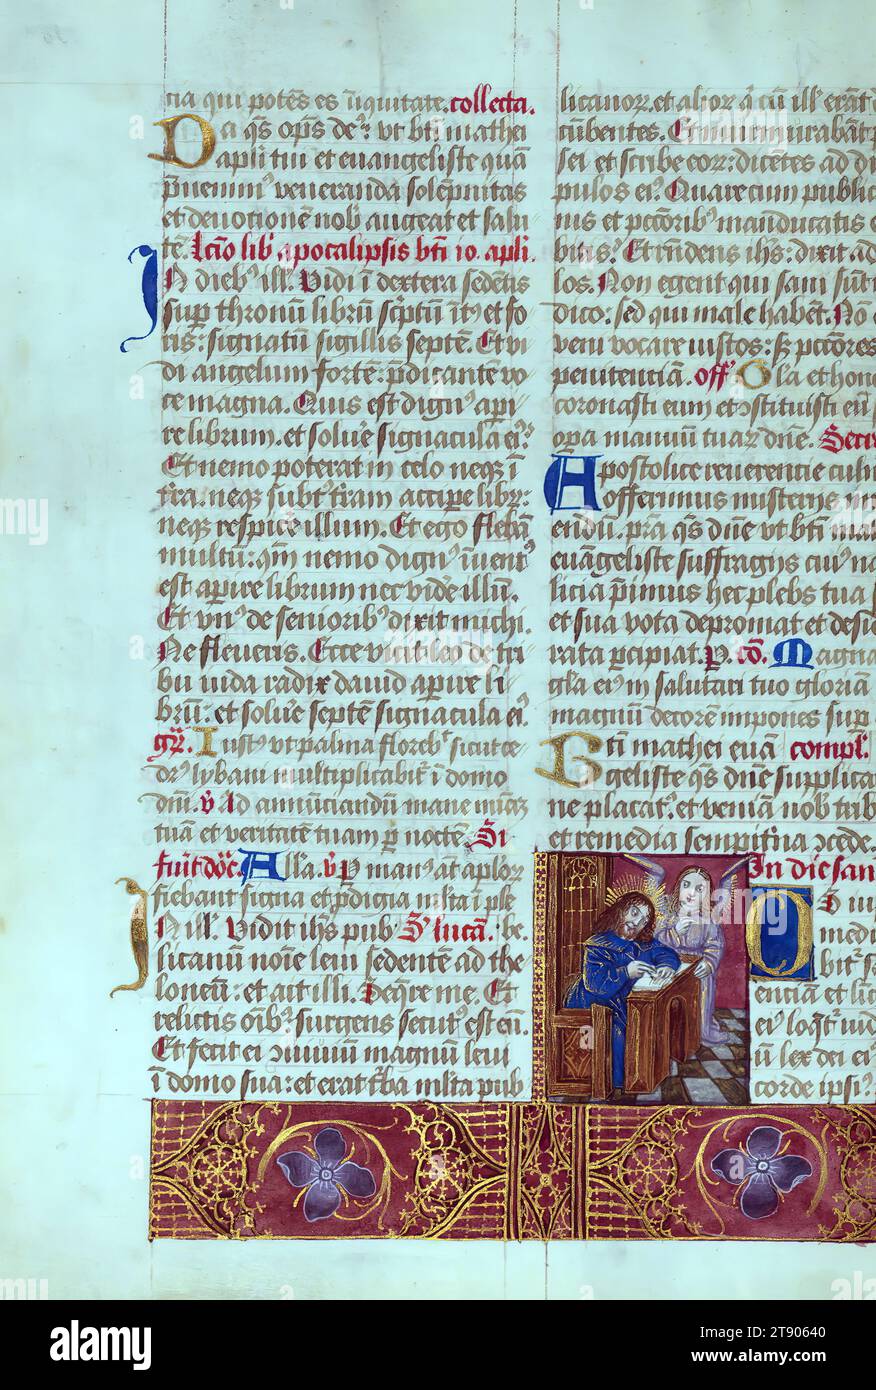 cia qui potēs es ī iquitate. collecta.
Da q̄s op̄s de⁹: vt bt̄i mathei
apl̄i tui et euangeliste quā
p̄uenim⁹ veneranda solēpnitas
et deuotionē nob̄ augeat et salu
tē. Lcīo lib̄ apocalipsis bt̄i io. apl̄i.
In dieb⁹ ill̄. Vidi ī dextera sedētis
sup̱ thronū librū sc̄ptū īt⁹ et fo
ris: signatū sigillis septē. Et vi
di angelum fortē: p̄dicante vo
ce magna. Quis est dign⁹ ap̱i
re librum. et solu͛e signacula ei⁹.
Et nemo poterat in celo neq̄ ī
tr̄a. neq̄ subt⁹ tr̄am accip̱e libꝝ:
neq̄ respice illum. Et ego flebā
multū: qm̄ nemo dign⁹ īuent⁹
est ap̱ire librum nec vid͛e illū.
Et vn⁹ de seniorib⁹ dixit michi.
Ne fleueris. Ecce vicit leo de tri
bu iuda radix dauid ap̱ire li
brū: et solu͛e septē signacula ei⁹.
gr̄. Iust⁹ vt palma floreb̄ sicut ce
dr⁹ lybani multiplicabit̄ ī domo
dn̄i. v̄ Ad annūciandū mane mīaꝫ
tuā et veritatē tuam p̱ noctē. Si
fu͛it do͛c. All̄a. v̄ P̱ man⁹ at aploꝝ
fiebant signa et p̱digia ml̄ta ī ple
In ill̄. Vidit ih̄s pub⁹ S. lucā. be.
licanū noīe leui sedentē ad the
loneū: et ait illi. Seq̄re me. Et
relictis oīb⁹ surgens secut⁹ est eū.
Et fecit ei ↄuiuiū magnū leui
ī domo sua: et erat tr̄ba ml̄ta pub
licanoꝝ. et alioꝝ q̄ cū ill̄ erāt
cūbentes. Et murmurabāt
sei et scribe eoꝝ: dicētes ad di
pulos ei⁹. Quare cum public
nis et pctōrib⁹ manducatis e
bitis? Et rn̄dens ih̄s: dixit ad
los. Non egent qui sani sūt
dico: sed qui male habēt. Nō
veni vocare iustos: sꝫ pctōres
penitenciā. off̄ Gl̄a et hono
coronasti eum et ↄstituisti eū s
op̱a manuū tuaꝝ dn̄e. Secr
Apostolice reuerencie culm
offerimus misterijs im
endū. pr̄a q̄s dn̄e vt bt̄i mat
euāgeliste suffragijs cui⁹ na
licia p̄imus hec plebs tua s
et sua vota depromat et desid
rata p̱cipiat. P. cō. Magna
gl̄a ei⁹ in salutari tuo gloriam
magnū decorē impones sup̱
Bt̄i mathei euā compl.
geliste q̄s dn̄e supplica
ne placat⁹. et veniā nob̄ trib
et remedia sempit͛na ↄcede.
In die san
O
medi
bit⁹ s
enciā et li
ei⁹ loq̄t⁹ iud
ū lex dei ei⁹
corde ipsi⁹.
alamy
Image ID: 2T90640
www.alamy.com